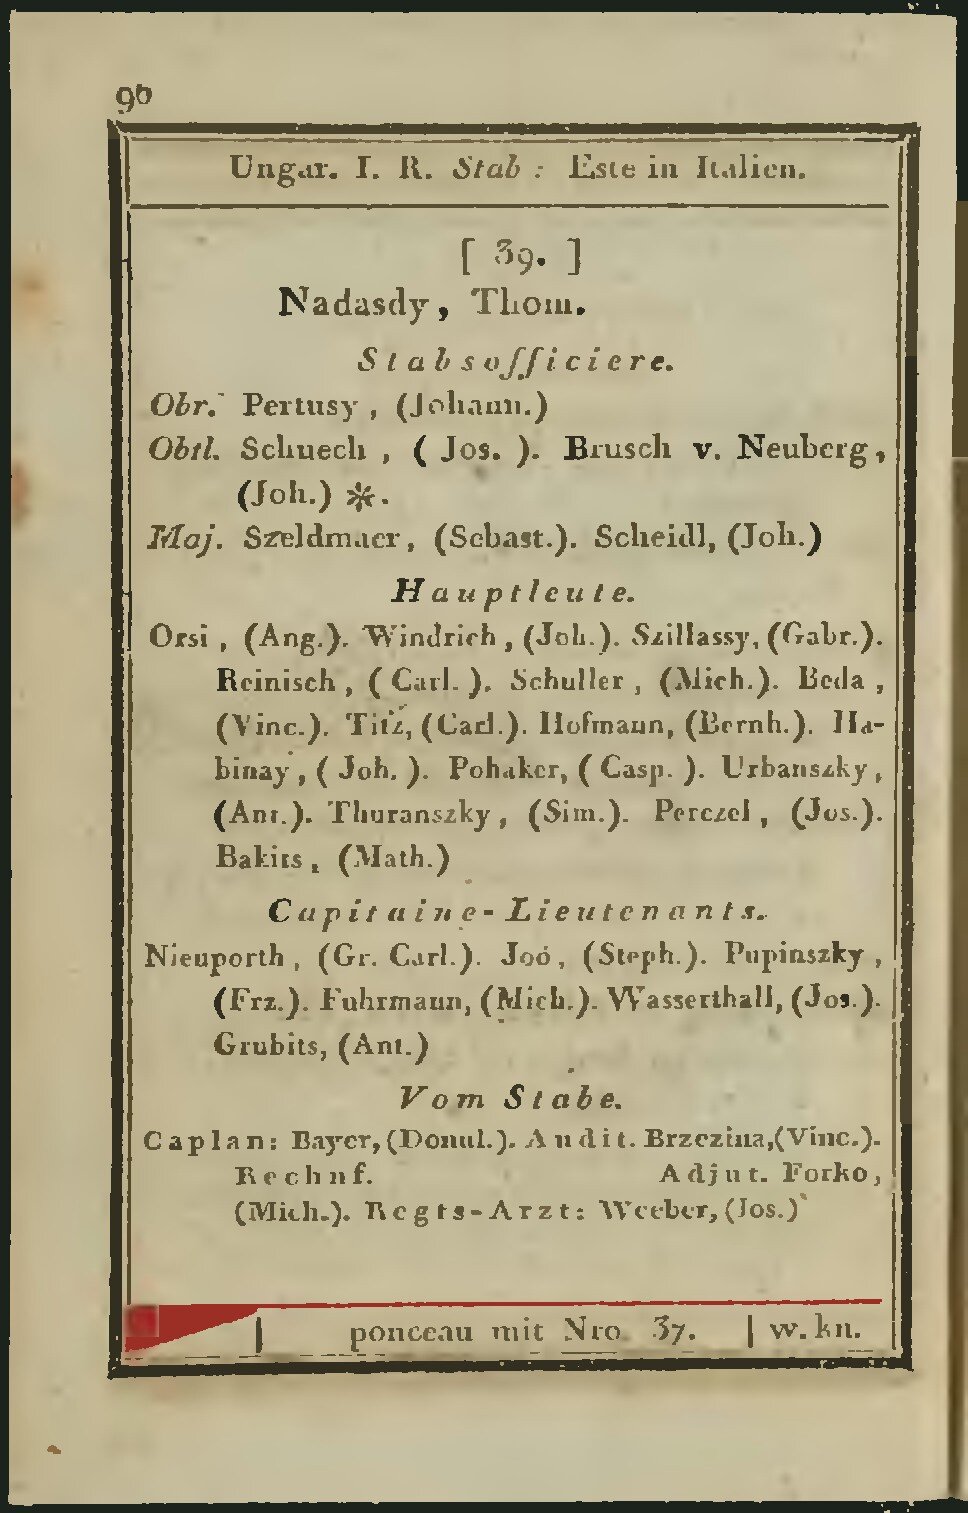 96
Ungar. I. R. Stab : Este in Italien.
[ 39. ]
Nadasdy, Thom.
Stabsofficiere.
Obr. Pertusy, (Johann.)
Obtl. Schuech, (Jos.). Brusch v. Neuberg,
(Joh.) ✻.
Maj. Szeldmaer, (Sebast.). Scheidl, (Joh.)
Hauptleute.
Orsi, (Ang.). Windrich, (Joh.). Szillassy, (Gabr.).
Reinisch, (Carl.). Schuller, (Mich.). Beda,
(Vinc.). Titz, (Carl.). Hofmann, (Bernh.). Ha-
binay, (Joh.). Pohaker, (Casp.). Urbanszky,
(Ant.). Thuranszky, (Sim.). Perczel, (Jos.).
Bakits, (Math.)
Capitaine-Lieutenants.
Nieuporth, (Gr. Carl.). Joó, (Steph.). Pupinszky,
(Frz.). Fuhrmann, (Mich.). Wasserthall, (Jos.).
Grubits, (Ant.)
Vom Stabe.
Caplan: Bayer, (Donul.). Audit. Brzezina, (Vinc.).
Rechnf. Adjut. Forko,
(Mich.). Regts-Arzt: Weeber, (Jos.)
ponceau mit Nro 37. | w. kn.